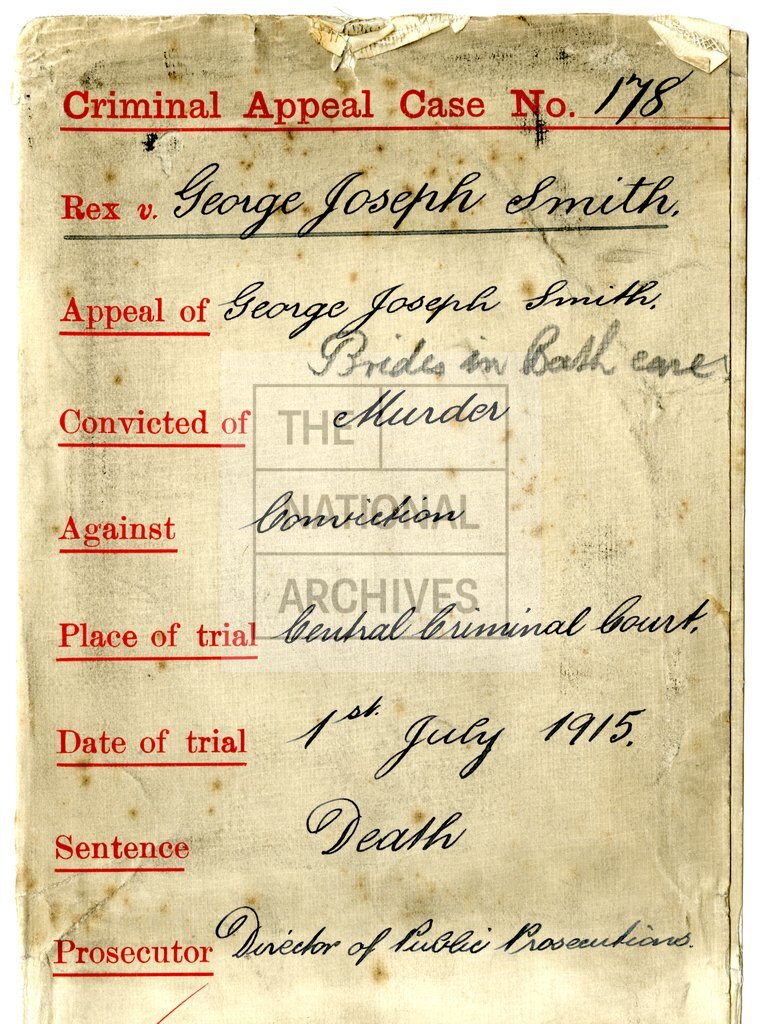 Criminal Appeal Case No. 178
Rex v. George Joseph Smith.
Appeal of George Joseph Smith.
Brides in Bath case
Convicted of Murder
THE
Against Conviction
NATIONAL
ARCHIVES
Place of trial Central Criminal Court.
Date of trial 1st. July 1915.
Sentence Death
Prosecutor Director of Public Prosecutions.